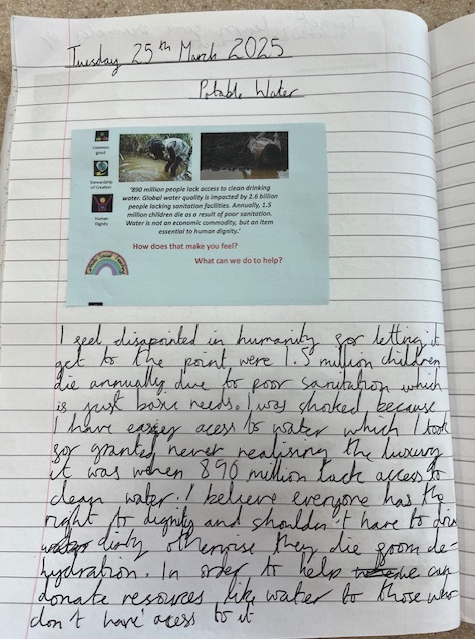 Tuesday 25th March 2025
Potable Water
Common good
Stewardship of Creation
Human Dignity
'890 million people lack access to clean drinking
water. Global water quality is impacted by 2.6 billion
people lacking sanitation facilities. Annually, 1.5
million children die as a result of poor sanitation.
Water is not an economic commodity, but an item
essential to human dignity.'
How does that make you feel?
What can we do to help?
I feel disapointed in humanity for letting it
get to the point were 1.5 million children
die annually due to poor sanitation which
is just basic needs. I was shoked because
I have easier acess to water which I took
for granted never realising the luxury
it was when 890 million lack access to
clean water. I believe everyone has the
right to dignity and shouldn't have to
dirty otherwise they die from de-
hydration. In order to help we can
donate resources like water to those who
don't have acess to it